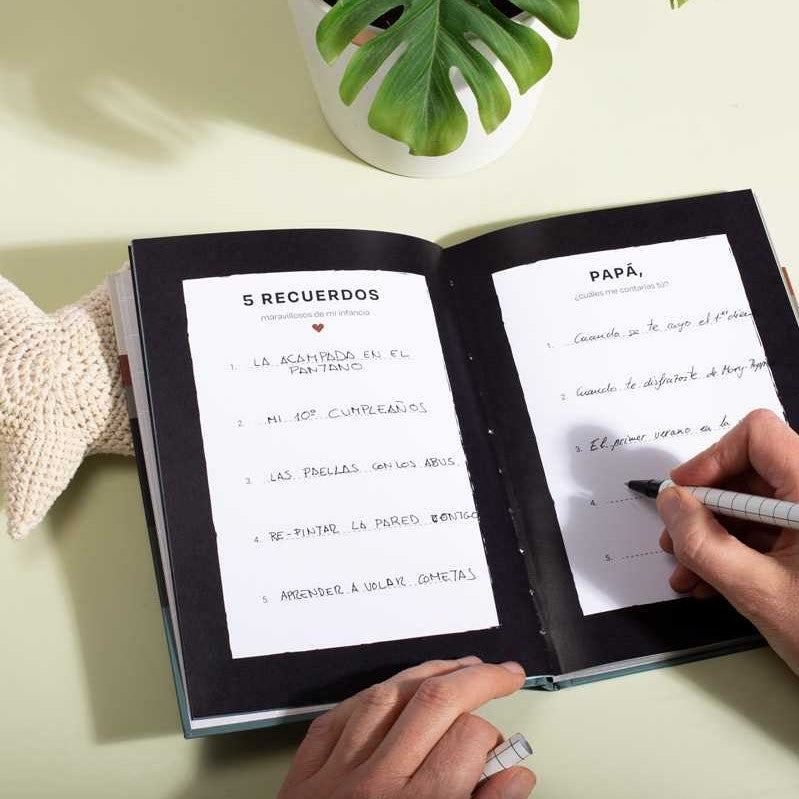 5 RECUERDOS
maravillosos de mi infancia
1. LA ACAMPADA EN EL
PANTANO
2. MI 10º CUMPLEAÑOS
3. LAS PAELLAS CON LOS ABUS.
4. RE-PINTAR LA PARED CONTGO
5. APRENDER A VOLAR COMETAS
PAPÁ,
¿cuáles me contarías tú?
1. Cuando se te cayo el 1er
2. Cuando te disfrazaste de Mary
3. El primer verano en la
4.
5.